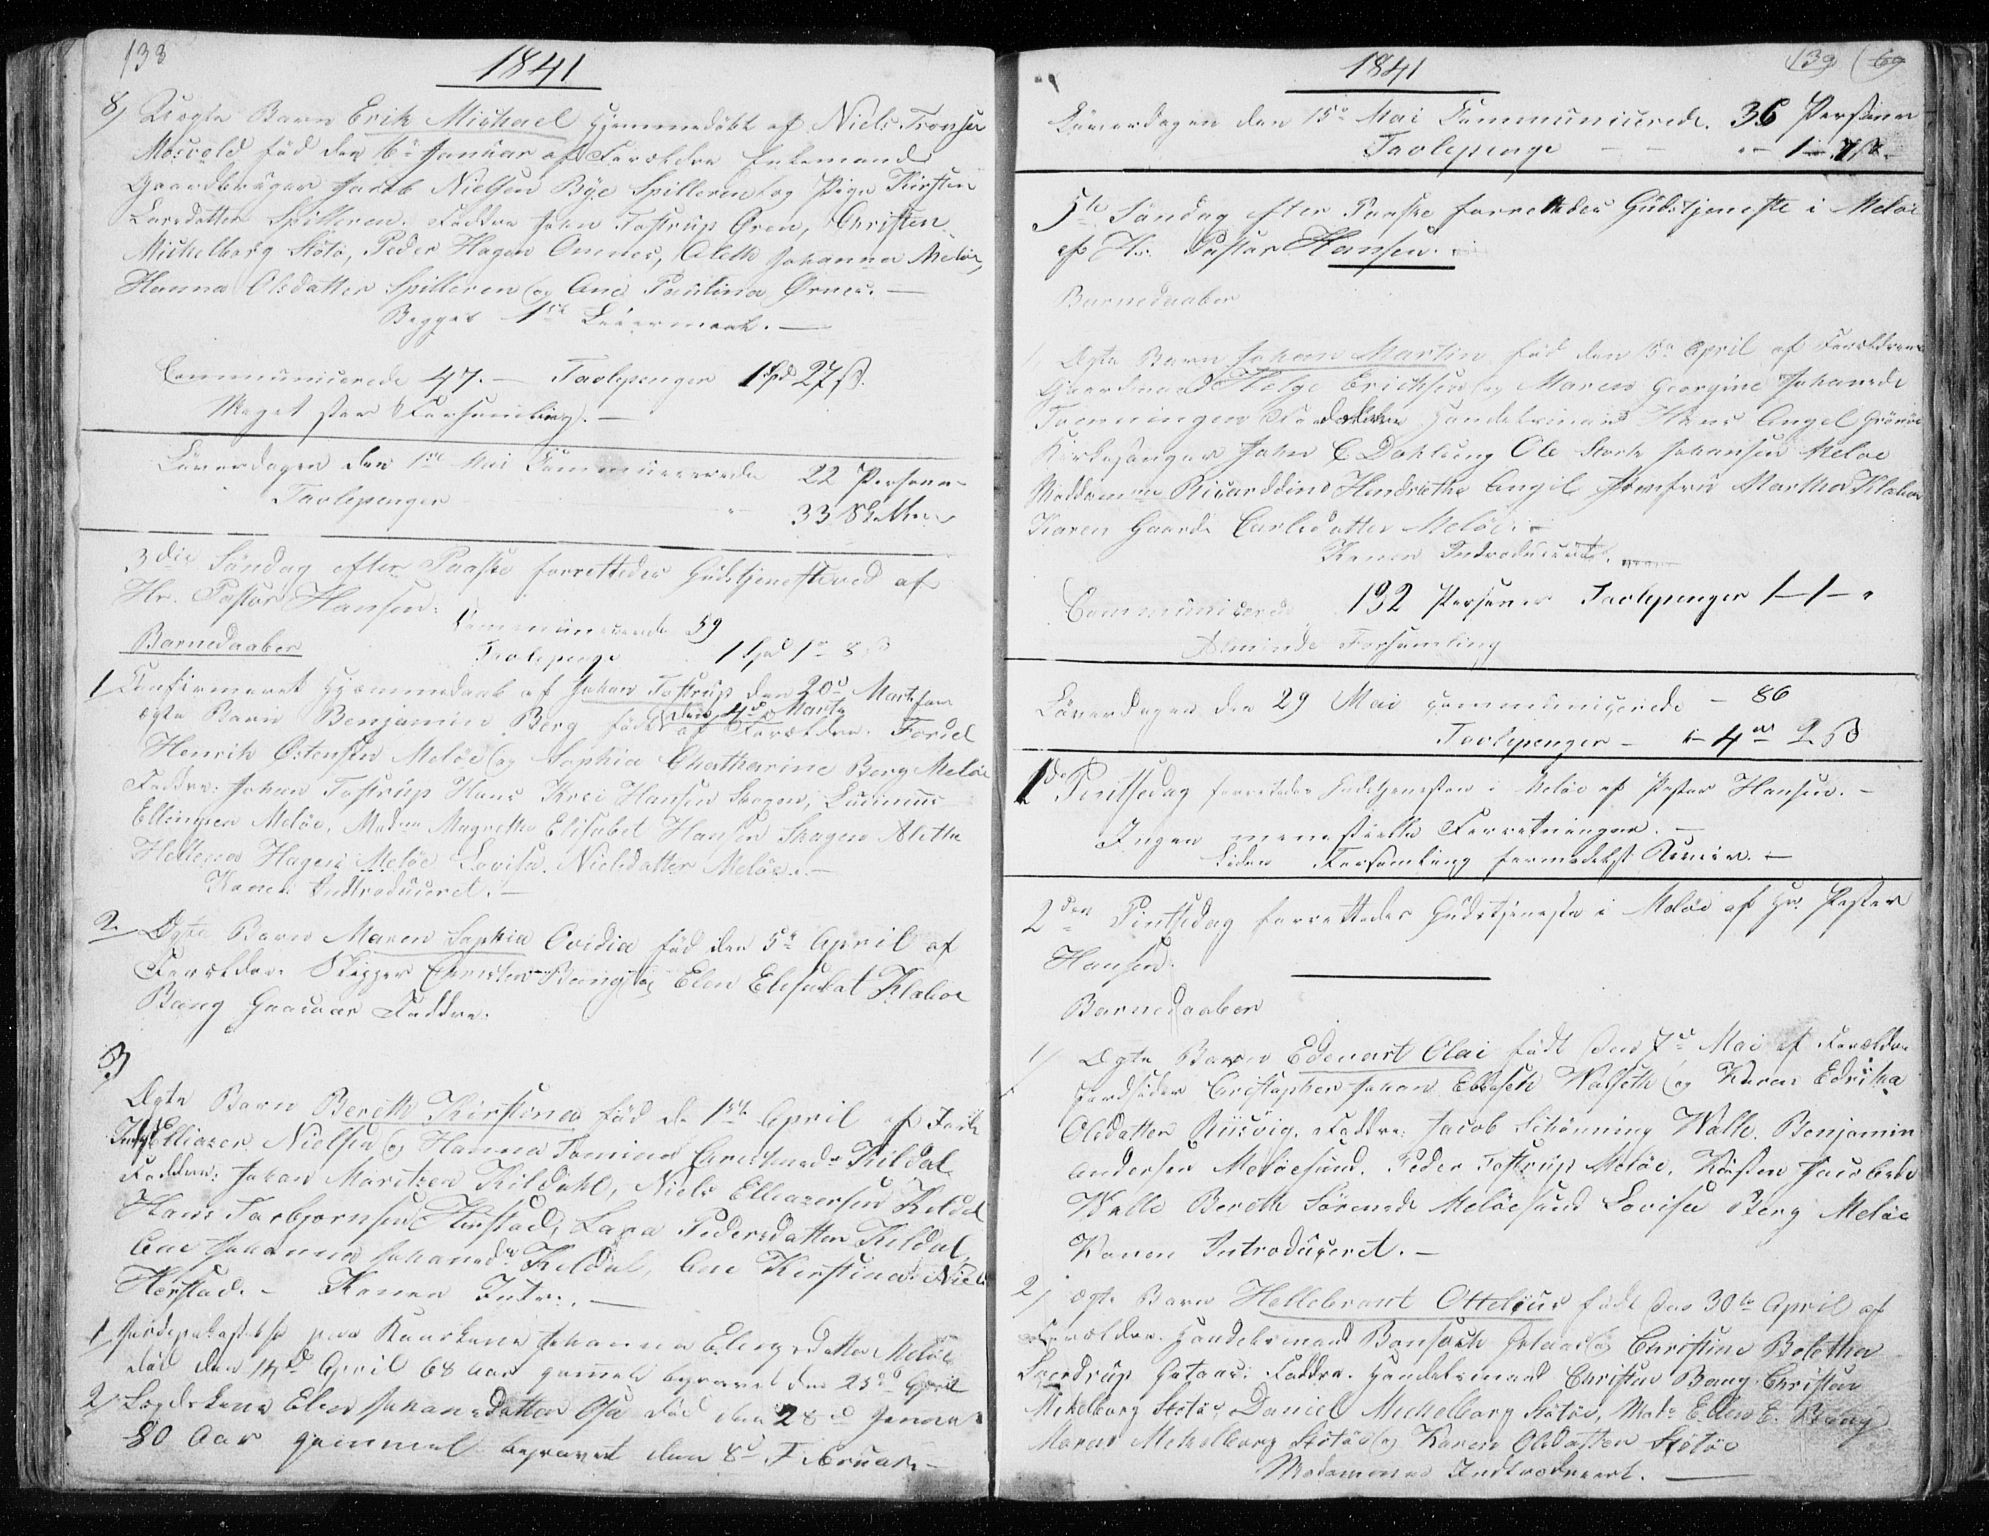 138
1841
8) Uægte Barn Erik Michael hjemmedöbt af Niels Tronsen
Mosvold föd den 6te Januar af Forældre Enkemand
Gaardbruger Jacob Nielsen Bye Spilleren og Pige Kirsten
Larsdatter Spilleren. Faddre John Tostrup Ören, Christen
Mechelborg Stötö, Peder Hagen Omnes, Aleth Johanna Melöe,
Hanna Olsdatter Spilleren og Ane Paulina Örnes. —
Begges 1ste Leiermaal. —
Communicerede 47. — Tavlepenger 1 Spd 27 ß.
Meget stor Forsamling. —
Löverdagen den 1ste Mai Communicerede 22 Personer
Tavlepenger 33 Skilling
3die Söndag efter Paaske forrettedes Gudstjenesten af
Hr. Pastor Hansen.
Communicerede 59
Barnedaaber
Tavlepenge 1 Spd 1 8 ß
1 Confirmeret Hjemmedaab af Johan Tostrup den 20d Marts for
ægte Barn Benjamin Berg född den 4de Marts af Forældre.
Henrik Östensen Melöe og Sophia Chatharine Berg Melöe
Faddre: Johan Tostrup Hans Krei Hansen Skagen,
Ellingsen Melöe, Madm Magrethe Elisabet Hansen Skagen Aletta
Hellena Hagen Melöe Lovisa Nielsdatter Melöe. —
Konen Indtroduceret. —
2. Ægte Barn Maren Sophia Ovidia föd den 5te April af
Forældre Skipper Christen Bang og Elen Elesabat Klæboe
Bang Faddre.
3)
Ægte Barn Bereth Kirstina föd de 1ste April af
Elliazer Nielsen og Hanna Tomina Kildal
Faddre: Johan Moritzen Kildahl, Niels Elleazersen Kildal
Hans Torbjørnsen Horstad, Lara Pedersdatter Kildal,
Ane Johanna Johansdr Kildal, Ane Kirstina Niels
Horstad. — Konen Intr. —
1 Jordpaakastelse paa Johanna Elingsdatter Melöe
död den 14d April 68 Aar gammel begravet den 25de April
2) Elen Johansdatter död den 28d Januar
80 Aar gammel begravet den 8d Februar —
1841
139 69
Löverdagen den 15de Mai Communicerede 36 Personer
Tavlepenge — — 1
5te Söndag efter Paaske forrettedes Gudstjeneste i Melöe
af Hr. Pastor Hansen.
Barnedaaber
1 Ægte Barn Johan Martin föd den 15de April af Forældrene
Gaardmand Helge Erichsen og Maren Georgine Johansdr
Faddere Handelsmand Hans Angel Grönöe
Kirkesanger John C Dahling Ole Johansen Melöe
Maddamme Ricarddine Hendrikthe Angel Jomfru Marthe Klæboe
Karen Gaarde Carlsdatter Melöe. —
Konen Introduceret.
Communicerede 132 Personer Tavlepenger 1-1-"
Alminde Forsamling
Löverdagen den 29 Mai communicerede — 86
Tavlepenger — " 4 2 ß
1ste Pintsedag forrettedes Gudstjenesten i Melöe af Pastor Hansen. —
Ingen menestrielle Forretninger. —
Liden Forsamling
2den Pintsedag forrettedes Gudstjeneste i Melöe af Hr. Pastor
Hansen.
Barnedaaber
1) Ægte Barn Edenart Olai födt den 7de Mai af Forældre
Jordsidder Cristopher Johan Walseth og Karen Edriska
Olsdatter Riisvig. Faddre: Jacob Schönning Walle. Benjamin
Andersen Melöesund. Peder Tostrup Melöe. Kirsten Jacobsdr
Walle Bereth Sörensdr Melöesund Lovisa Berg Melöe
Konen Introduceret. —
2) ægte Barn Hellebrant Ottelius födt den 30te April af
Forældre. Handelsmand Bonsach og Christine Boletha
Sverdrup Faddre. Handelsmand Christen Bang Christen
Mekelborg Stötö Daniel Mechelborg Stötöe, Mad. Ellen E. Bang
Maren Mekelborg Stötöe og Karen Olsdatter Stötöe
Madammen Indtroduceret. —